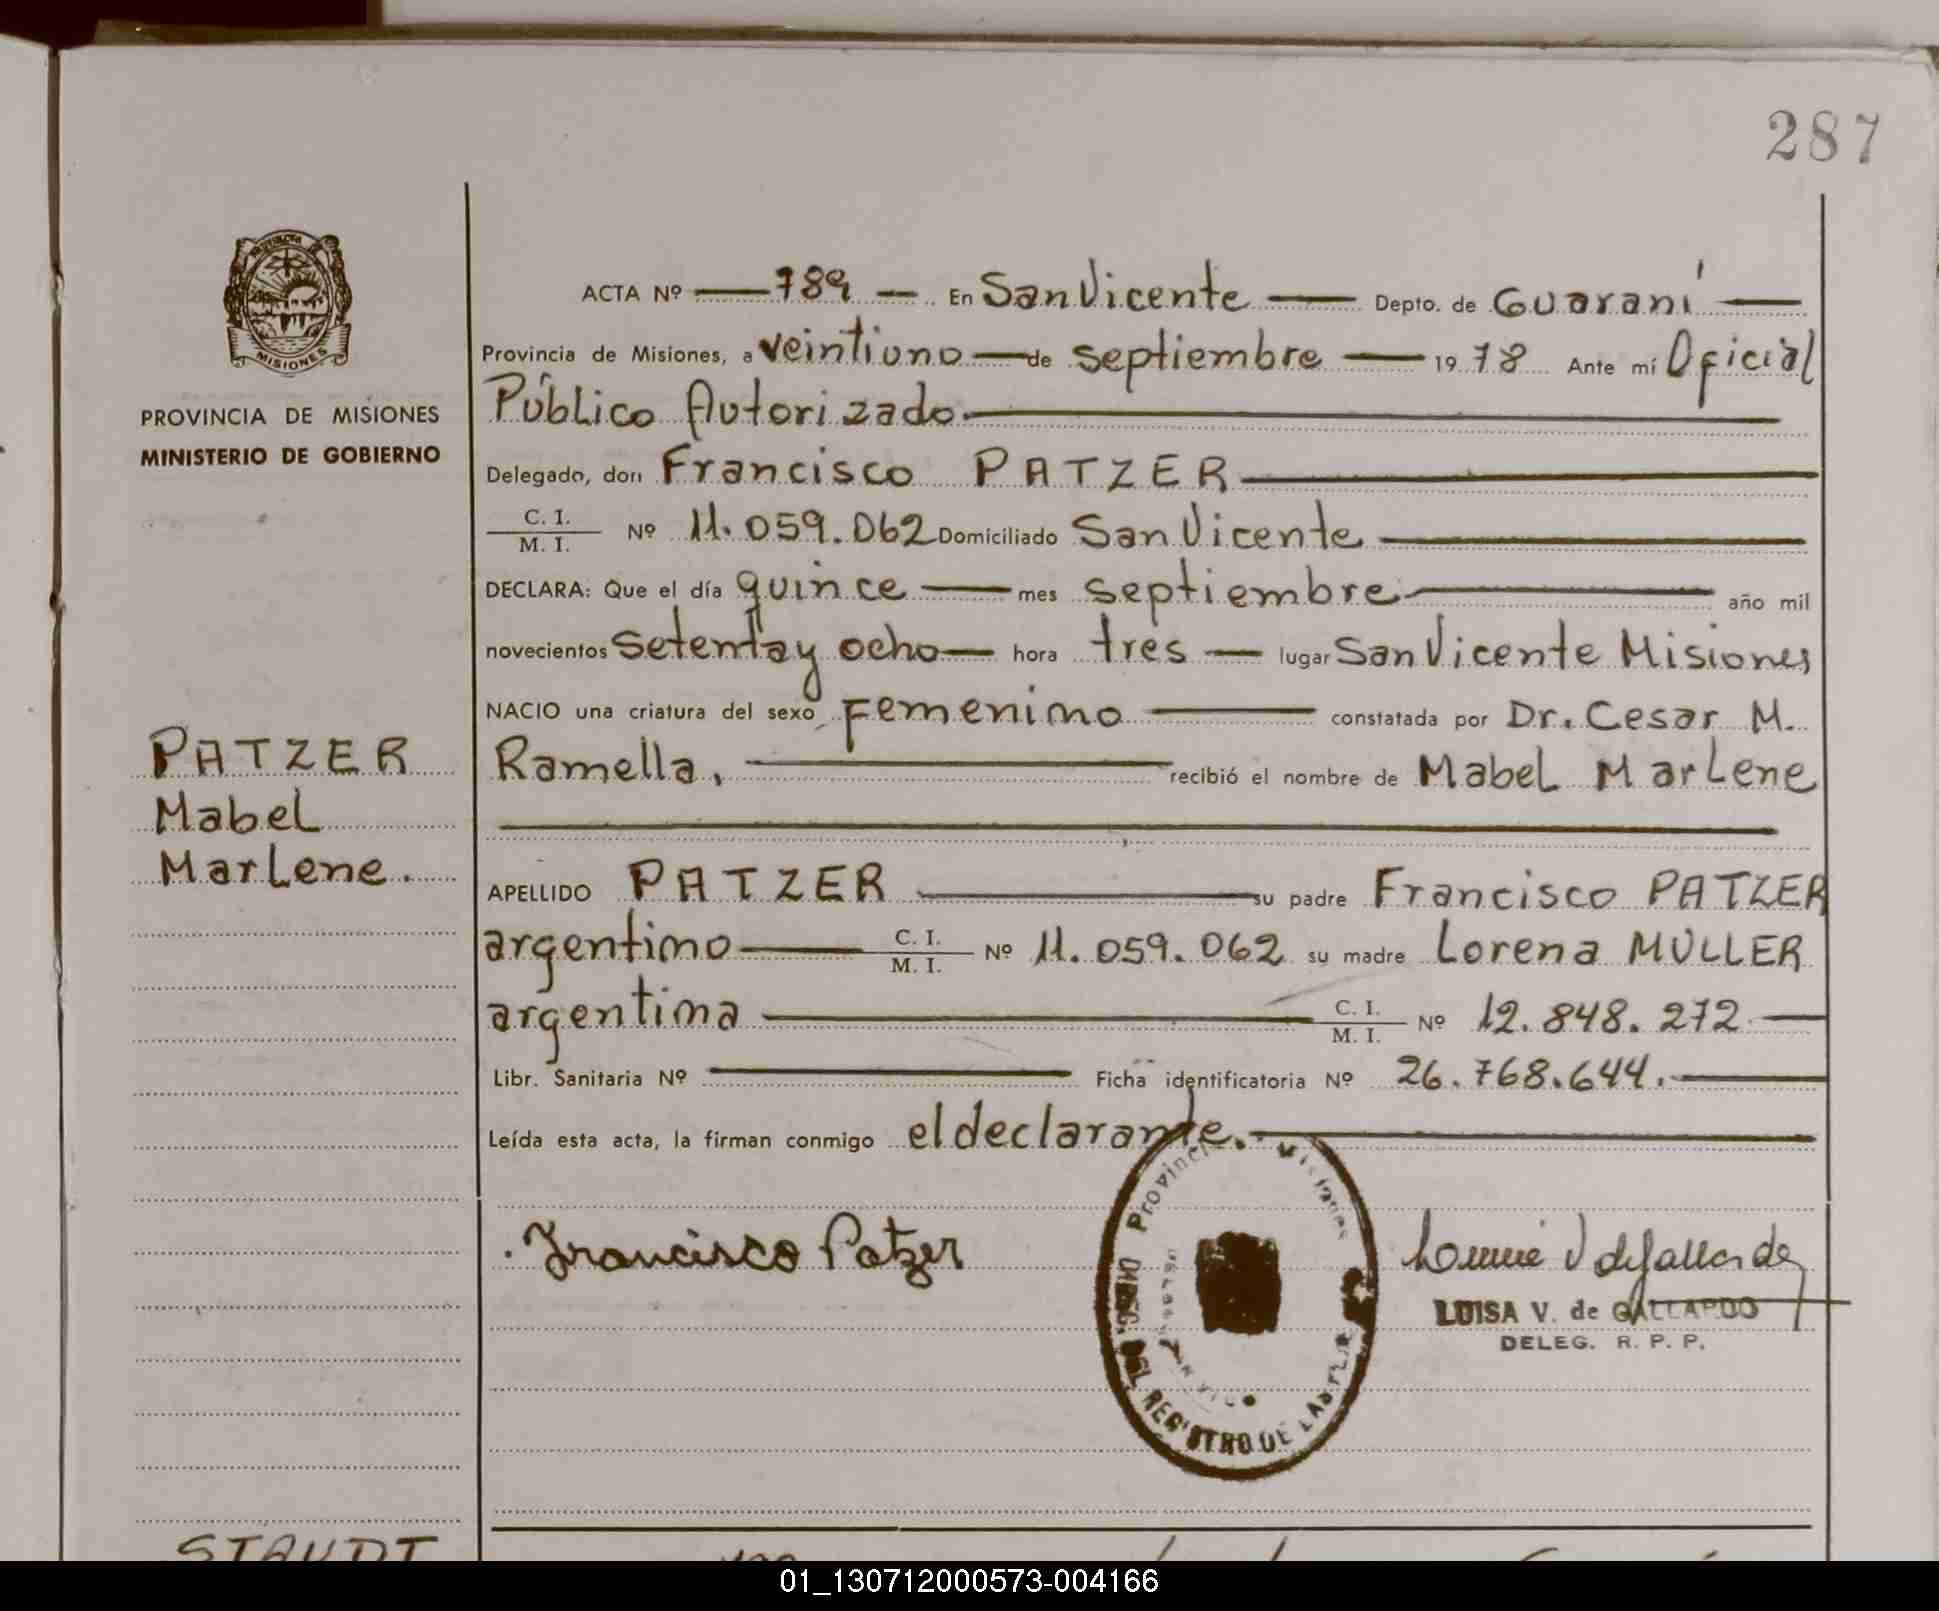 287
ACTA Nº 789 En San Vicente Depto. de Guaraní
Provincia de Misiones, a veintiuno de septiembre 1978 Ante mí Oficial
Público Autorizado.
Delegado, don Francisco PATZER
C. I. / M. I. Nº 11.059.062 Domiciliado San Vicente
DECLARA: Que el día quince mes septiembre año mil
novecientos setenta y ocho hora tres lugar San Vicente Misiones
NACIO una criatura del sexo femenino constatada por Dr. Cesar M.
Ramella, recibió el nombre de Mabel Marlene
APELLIDO PATZER su padre Francisco PATZER
argentino C. I. / M. I. Nº 11.059.062 su madre Lorena MULLER
argentina C. I. / M. I. Nº 12.848.272
Libr. Sanitaria Nº Ficha identificatoria Nº 26.768.644.
Leída esta acta, la firman conmigo el declarante.
Francisco Patzer
LUISA V. de GALLARDO
DELEG. R. P. P.
Provincia Misiones
DIREC. DEL REGISTRO DE LAS
MISIONES
PROVINCIA DE MISIONES
MINISTERIO DE GOBIERNO
PATZER
Mabel
Marlene.
STAUDT
01_130712000573-004166